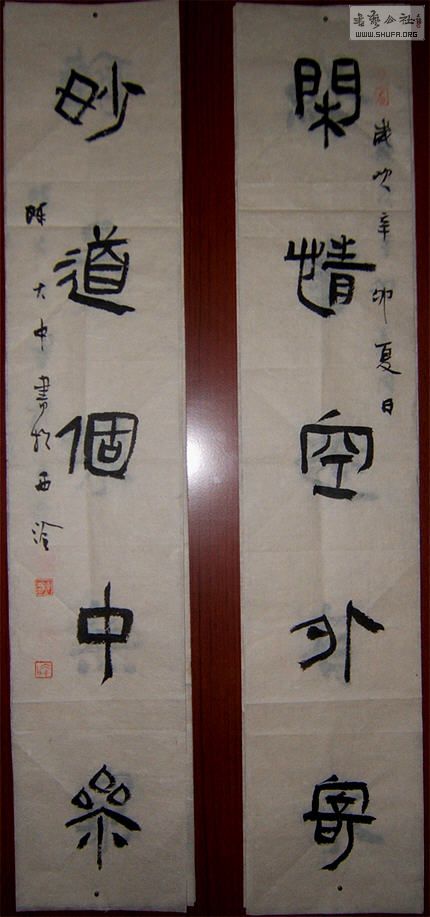 歲次辛卯夏日
閑情空外寄
妙道個中參
陳大中書於西泠
書藝公社
WWW.SHUFA.ORG